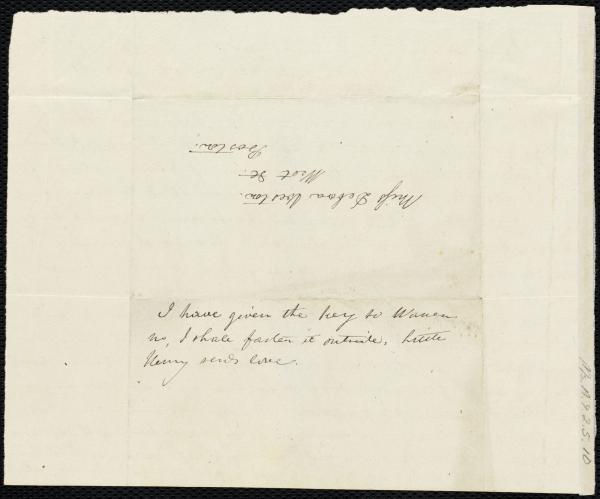 Miss Debora Weston.
West St.
Boston.
I have given the key to Warren
no, I shall fasten it outside. Little
Henry sends love.
Ms. A.9.2.5.10